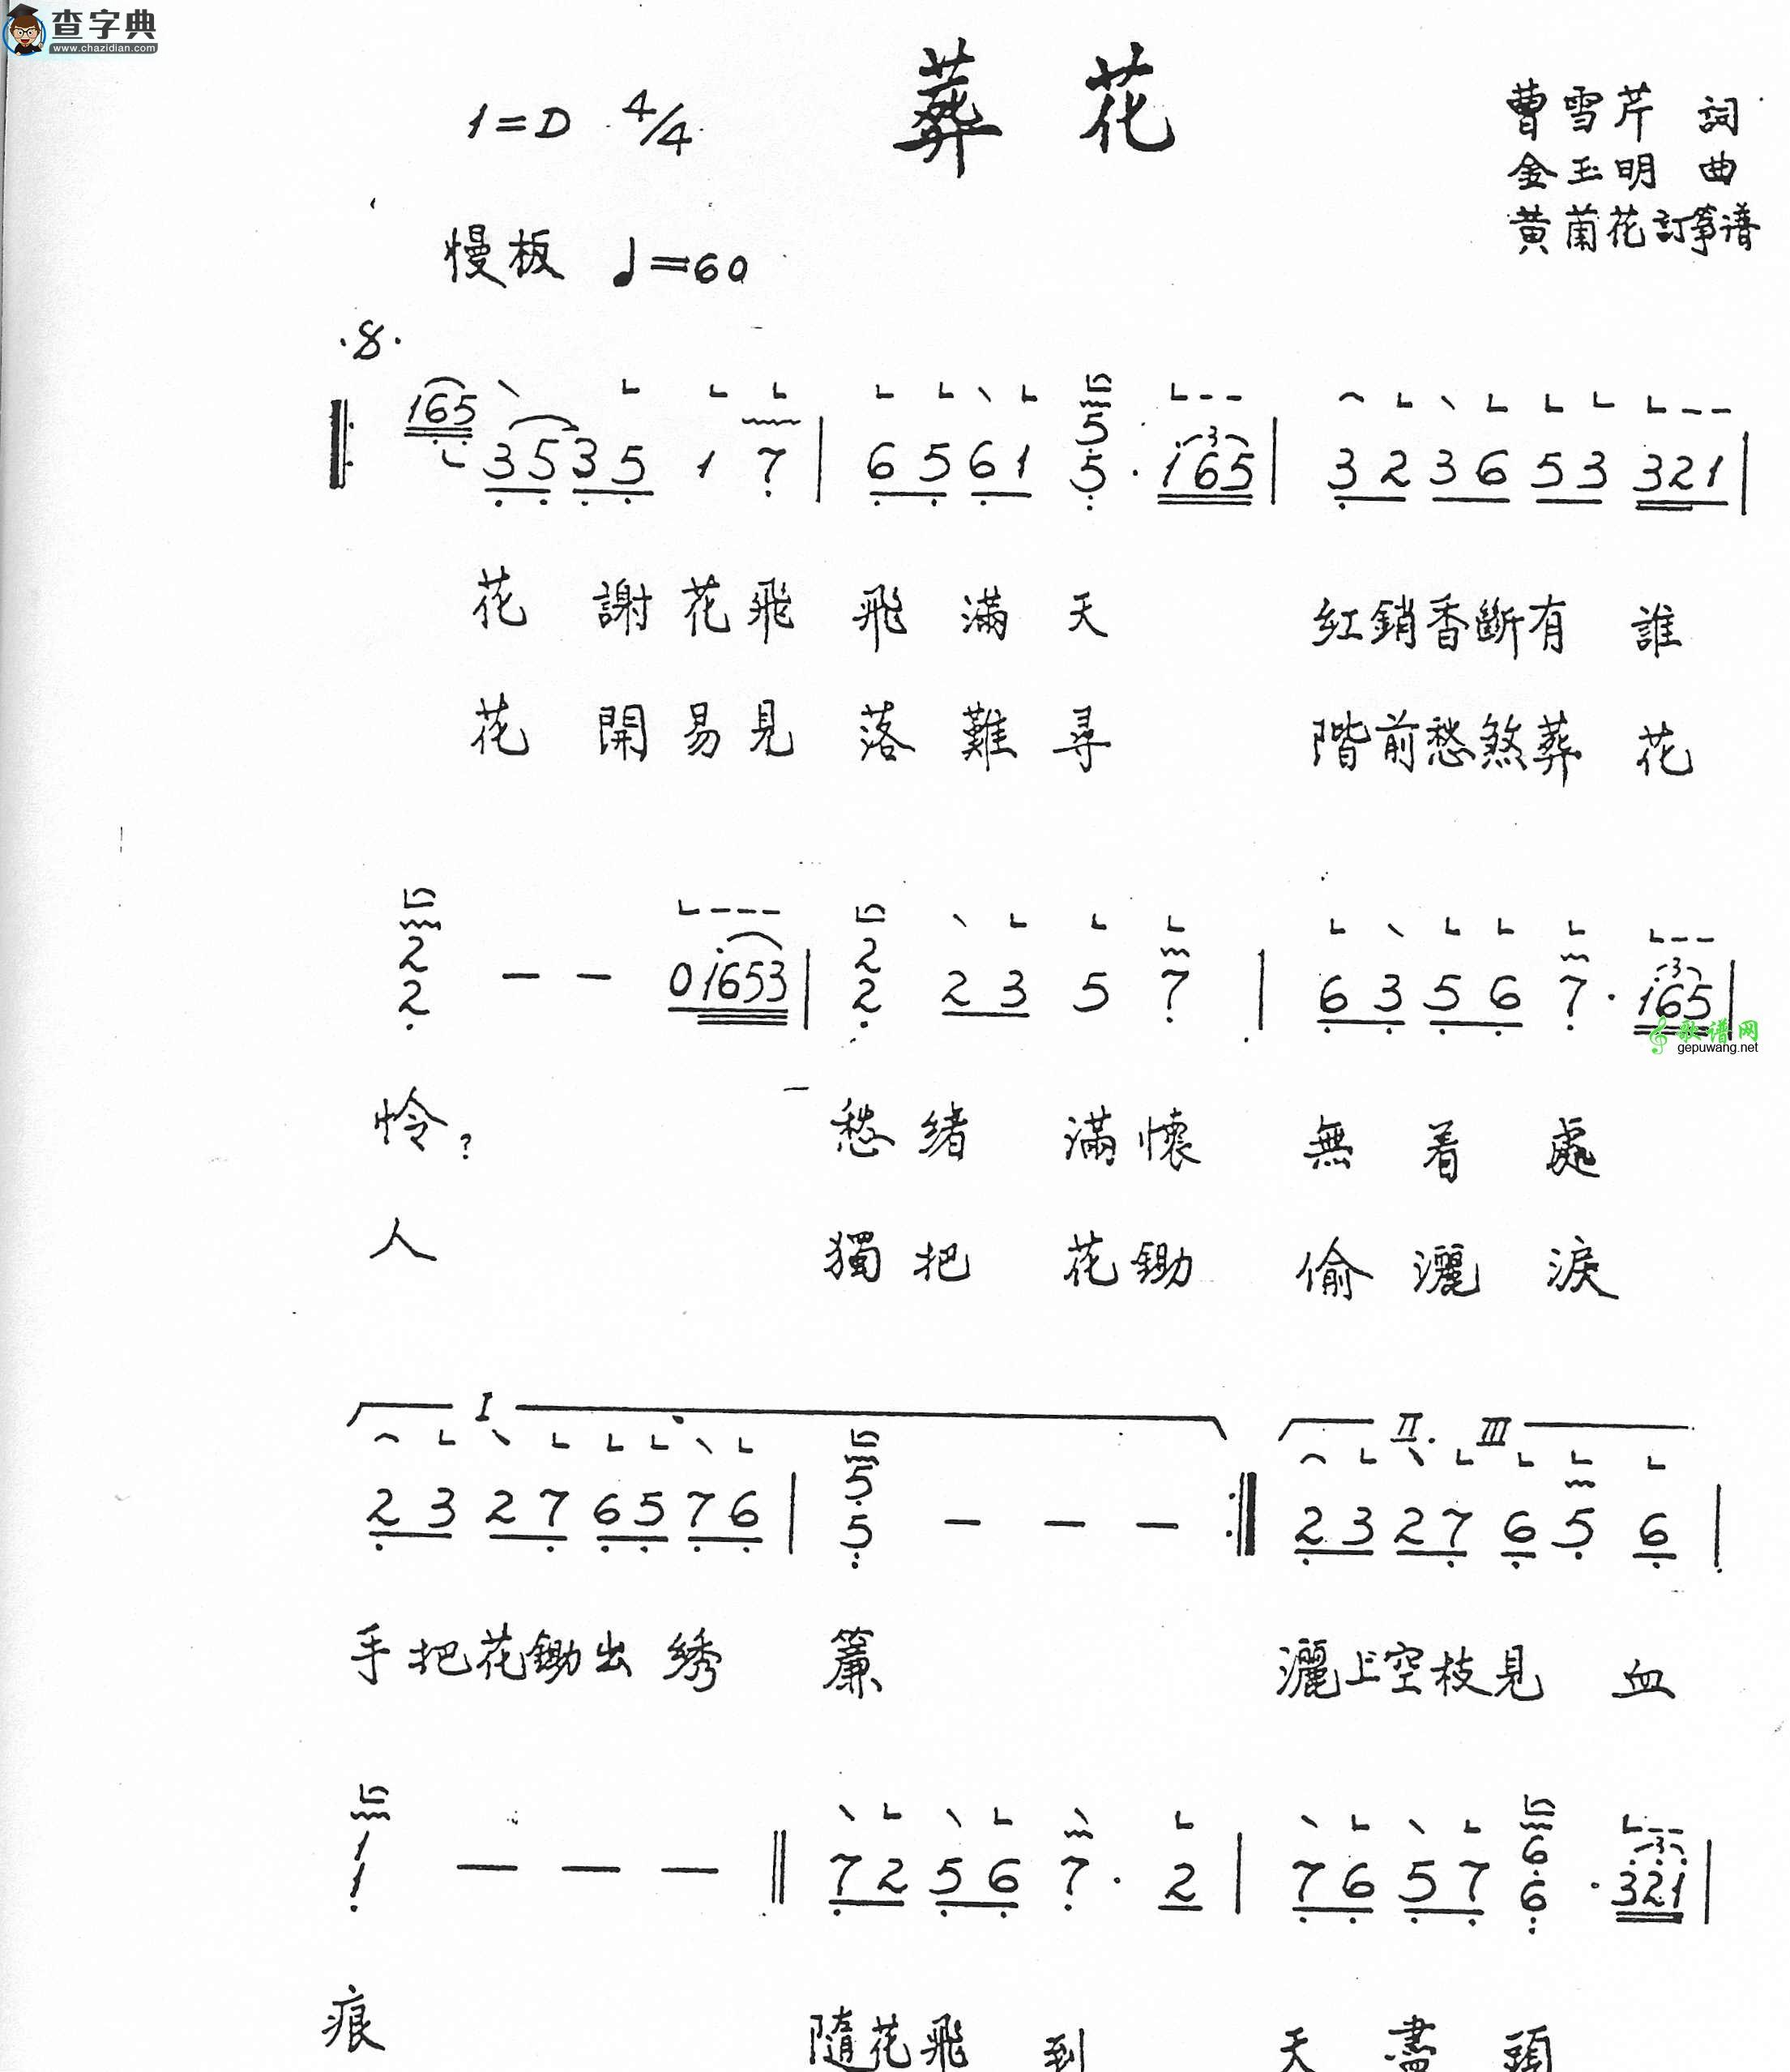 查字典
www.chazidian.com
葬花
1=D 4/4
曹雪芹 詞
金玉明 曲
黄蘭花訂箏谱
慢板 ♩=60
165 35 35 1 7 | 65 61 5 5 · 165 | 32 36 53 321 |
花 謝 花 飛 飛 滿 天 红銷香斷有 誰
花 開 易 見 落 難 尋 階前愁煞葬 花
2 2 - - 01653 | 2 2 23 5 7 | 63 56 7 · 165 |
歌谱网
gepuwang.net
怜? 愁 绪 滿 懷 無 着 處
人 獨 把 花 鋤 偷 灑 淚
I II. III
23 27 65 76 | 5 5 - - - :‖ 23 27 6 5 6 |
手把花鋤出 绣 簾 灑上空枝見 血
1 1 - - - ‖ 72 56 7 · 2 | 76 57 6 6 · 321 |
痕 隨花飛 到 天 盡 頭